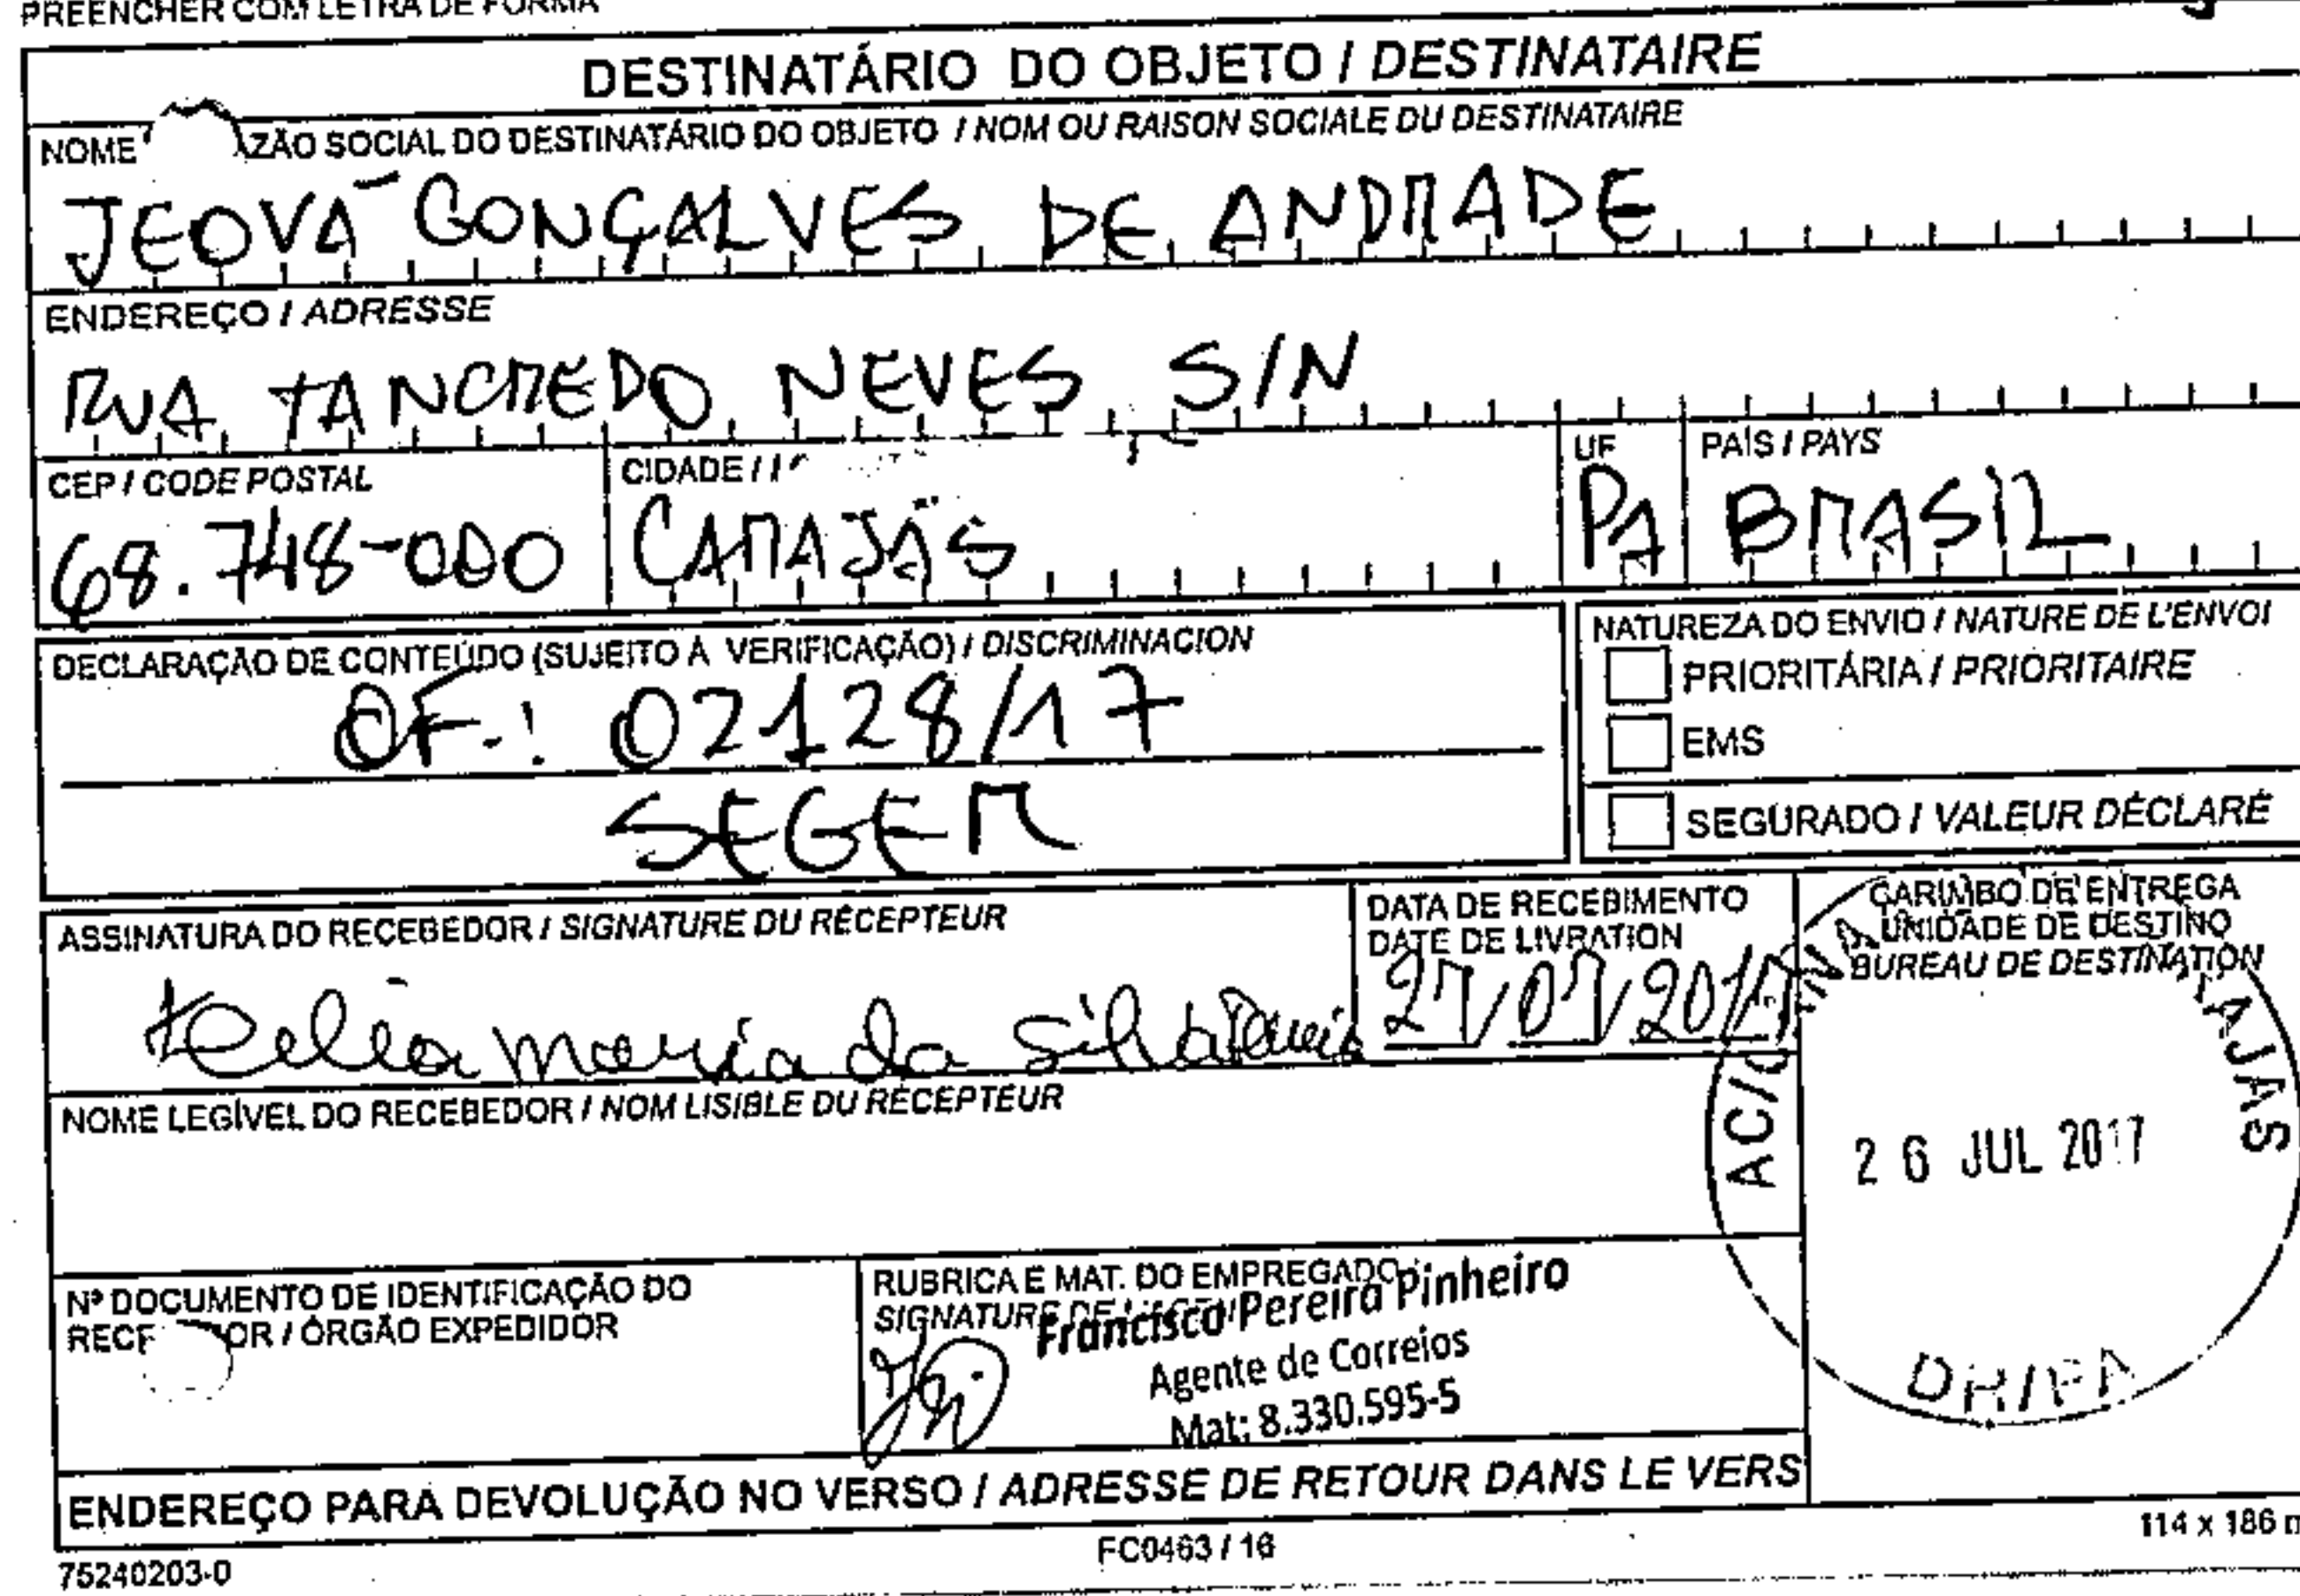 PREENCHER COM LETRA DE FORMA
DESTINATÁRIO DO OBJETO / DESTINATAIRE
NOME ZÃO SOCIAL DO DESTINATÁRIO DO OBJETO / NOM OU RAISON SOCIALE DU DESTINATAIRE
JEOVÁ GONÇALVES DE ANDRADE
ENDEREÇO / ADRESSE
RUA TANCREDO NEVES, S/N
CEP / CODE POSTAL CIDADE / UF PAÍS / PAYS
68.748-000 CARAJÁS PA BRASIL
DECLARAÇÃO DE CONTEÚDO (SUJEITO À VERIFICAÇÃO) / DISCRIMINACION
OF.: 02128/17
SEGER
NATUREZA DO ENVIO / NATURE DE L'ENVOI
PRIORITÁRIA / PRIORITAIRE
EMS
SEGURADO / VALEUR DÉCLARÉ
ASSINATURA DO RECEBEDOR / SIGNATURE DU RÉCEPTEUR
maria da Silva
DATA DE RECEBIMENTO
DATE DE LIVRATION
27/07/2017
CARIMBO DE ENTREGA
UNIDADE DE DESTINO
BUREAU DE DESTINATION
AC/ AJAS
26 JUL 2017
DR/PA
NOME LEGÍVEL DO RECEBEDOR / NOM LISIBLE DU RÉCEPTEUR
Nº DOCUMENTO DE IDENTIFICAÇÃO DO
RECE OR / ÓRGÃO EXPEDIDOR
RUBRICA E MAT. DO EMPREGADO
SIGNATURE DE
Francisco Pereira Pinheiro
Agente de Correios
Mat: 8.330.595-5
ENDEREÇO PARA DEVOLUÇÃO NO VERSO / ADRESSE DE RETOUR DANS LE VERS
75240203-0 FC0463 / 16 114 x 186